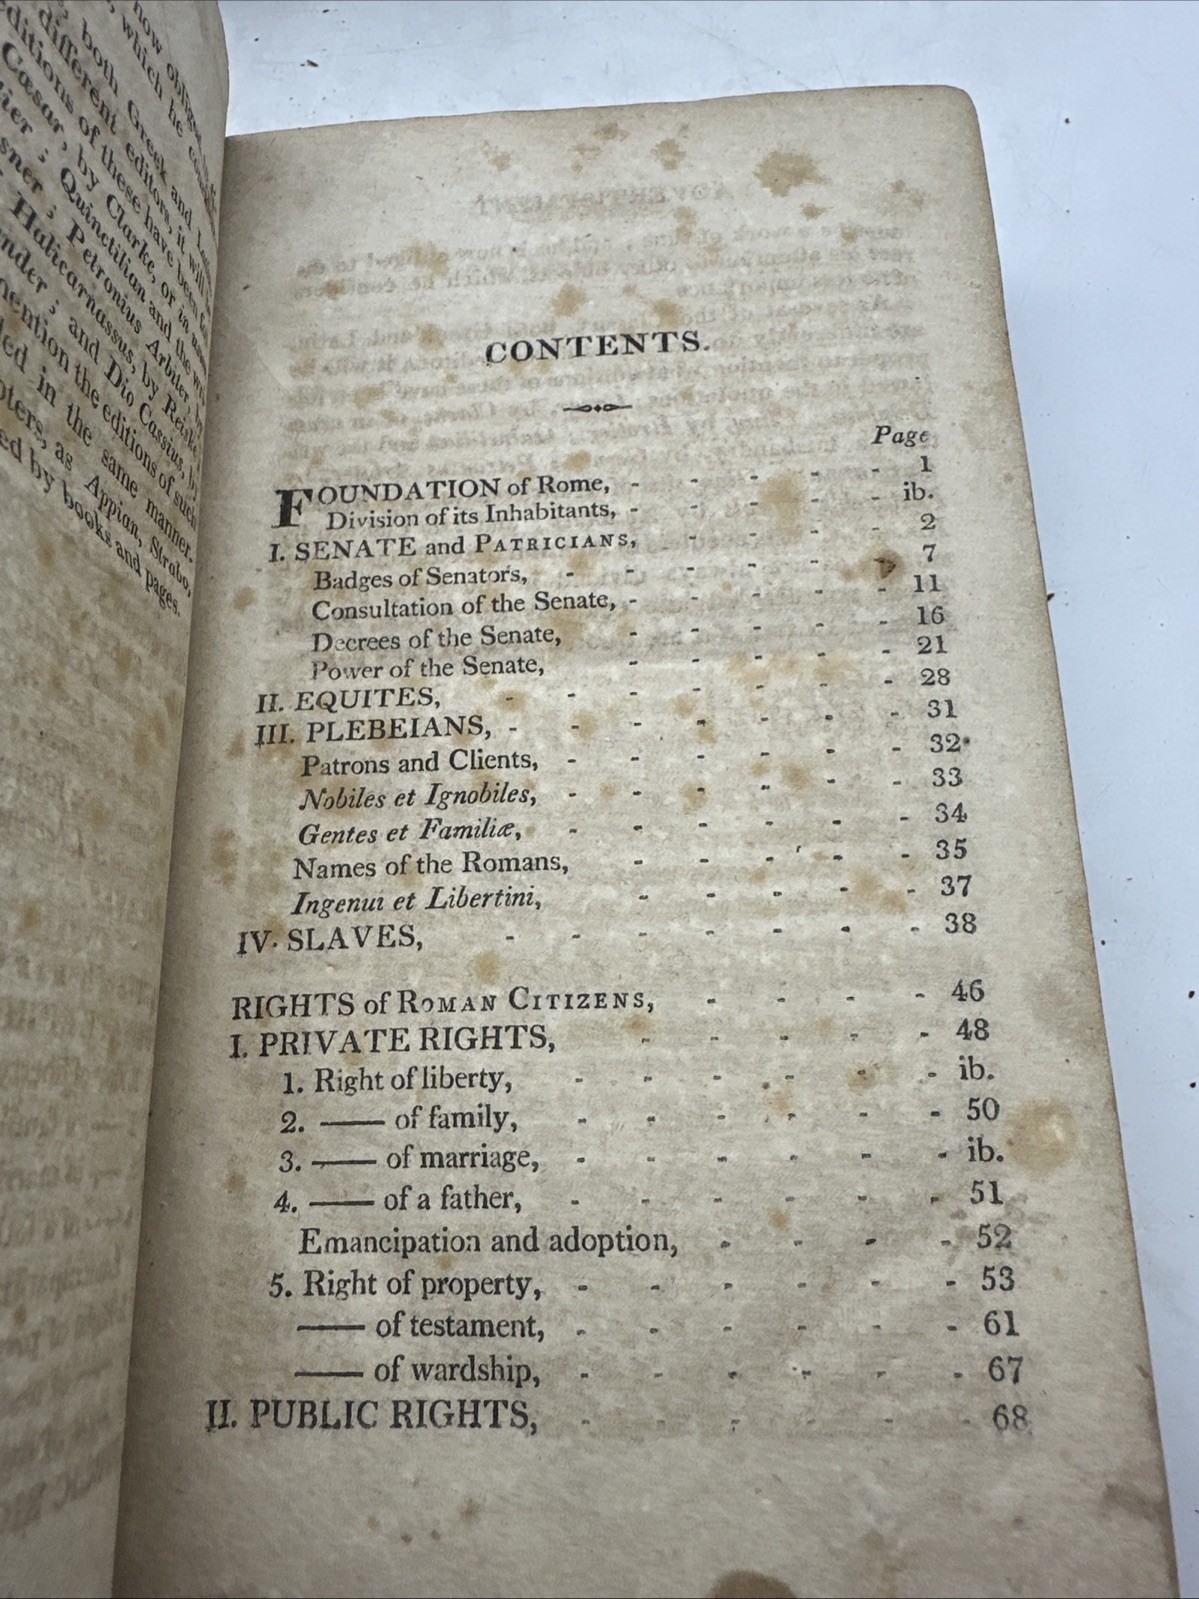 now oblige
which he
both Greek and
different editors, it will
editions of these have been
Cæsar, by Clarke, or in
Quinctilian and the
Petronius Arbiter, by
Halicarnassus, by Reiske
and Dio Cassius, by
mention the editions of such
in the same manner.
as Appian, Strabo,
by books and pages.
CONTENTS.
Page
FOUNDATION of Rome, - - - - - 1
Division of its Inhabitants, - - - - - ib.
I. SENATE and PATRICIANS, - - - - 2
Badges of Senators, - - - - - 7
Consultation of the Senate, - - - - - 11
Decrees of the Senate, - - - - - 16
Power of the Senate, - - - - - 21
II. EQUITES, - - - - - - - 28
III. PLEBEIANS, - - - - - - - 31
Patrons and Clients, - - - - - - 32
Nobiles et Ignobiles, - - - - - - 33
Gentes et Familiæ, - - - - - - 34
Names of the Romans, - - - - - 35
Ingenui et Libertini, - - - - - 37
IV. SLAVES, - - - - - - - 38
RIGHTS of ROMAN CITIZENS, - - - - 46
I. PRIVATE RIGHTS, - - - - - 48
1. Right of liberty, - - - - - - ib.
2. —— of family, - - - - - - 50
3. —— of marriage, - - - - - - ib.
4. —— of a father, - - - - - - 51
Emancipation and adoption, - - - - 52
5. Right of property, - - - - - - 53
—— of testament, - - - - - - 61
—— of wardship, - - - - - - 67
II. PUBLIC RIGHTS, - - - - - - 68